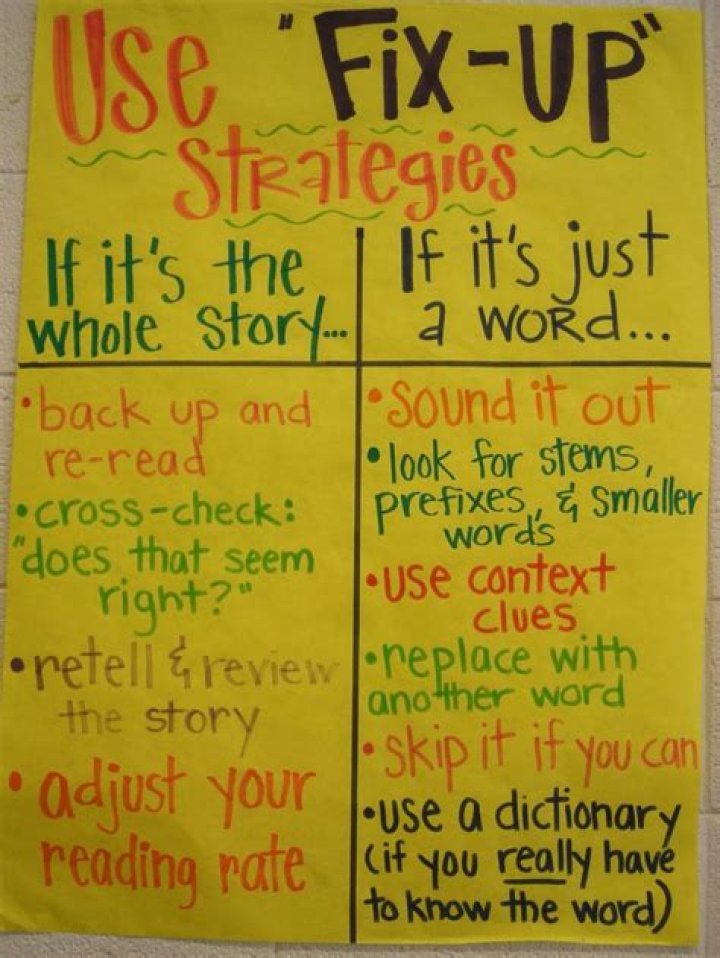 Use "Fix-up"
Strategies
If it's the
whole story...
•back up and
re-read
•cross-check:
"does that seem
right?"
•retell & review
the story
•adjust your
reading rate
If it's just
a word...
•sound it out
•look for stems,
prefixes, & smaller
words
•use context
clues
•replace with
another word
•skip it if you can
•use a dictionary
(if you really have
to know the word)